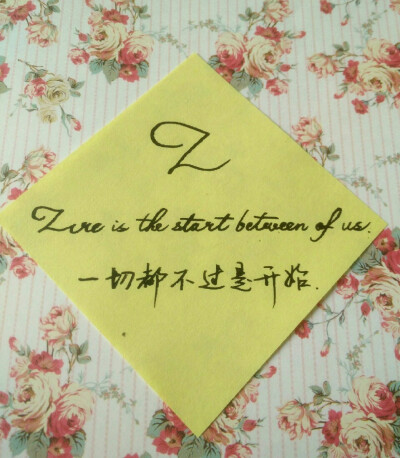 Z
Zore is the start between of us.
一切都不过是开始.